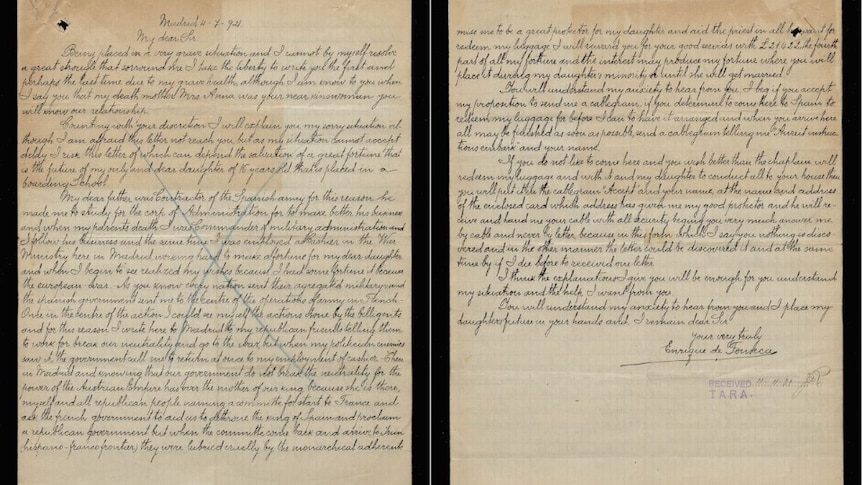 Madrid 4-7-921
My dear Sir.
Being placed in a very grave situation and I cannot by myself resolve
a great struggle that sorround me I take the liberty to write you the first and
perhaps the last time due to my grave health, although I am know to you when
I say you that my death mother Mrs Anna was your near kinswomen you
will know our relationship.
Counting with your discretion I will explain you my sorry situation al
though I am afraid this letter not reach you, but as my situation cannot accept
delay I risk this letter of which can depend the salvation of a great fortune that
is the future of my only and dear daughter of 15 years old that is placed in a
boarding School.
My dear father was Contractor of the Spanish army for this reason he
made me to study for the corp of Administration for to make better his business
and when my parents death I was Commander of military administration and
I follow his business and the same time I was employed as Cashier in the War
Ministry here in Madrid working hard to make a fortune for my dear daughter
and when I begin to see realized my wishes because I had some fortune it became
the european War. As you know every nation sent their agregated military and
the spanish government sent me to the centre of the operations of army in French.
Once in the centre of the action I could see myself the actions done by the belligents
and for this reason I write here to Madrid to my republican friends telling them
to work for break our neutrality and go to the war, but when my politician enemies
saw it, the government call me to return at once to my employment of cashier. Then
in Madrid and knowing that our government do not break the neutrality for the
power of the Austrian Empire has over the mother of our king because she is there,
myself and all republican people naming a committe for start to France and
ask the french government to aid us to detrone the king of Spain and proclaim
a republican government but when the committe come back and arrive to Irun
(hispano-franco frontier) they were labried cruelly by the monarchical adherent
miss me to be a great protector for my daughter and aid the priest in all he want for
redeem my luggage I will reward you for your good services with £ 21422 the fourth
part of all my fortune and the interest may produce my fortune where you will
place it during my daughter's minority or until she will get married.
You will understand my anxiety to hear from you, I beg if you accept
my proposition to send me a cablegram, if you determine to come here to Spain to
redeem my luggage for before I can to have it arranged and when you arrive here
all may be finished as soon as possible, send a cablegram telling me "Arrest instruc
tions embark" and your name.
If you do not like to come here and you wish better than the chaplain will
redeem my luggage and with it and my daughter to conduct all to your house then
you will put in the cablegram "Accept" and your name, at the name and address
of the enclosed card which address has given me my good protector and he will re-
ceive and hand me your cable with all security, beging you very much answer me
by cable and never by letter, because in this form behalf I say you nothing is discs
vered and in the other manner the letter could be discovered it and at the same
time by if I die before to received one letter.
I think the explanations I give you will be enough for you understand
my situation and the help I want from you
You will understand my anxiety to hear from you and I place my
daughter's future in your hands and I remain dear Sir
Your very truly
Enrique de Fonseca
RECEIVED
T.A.R.A.